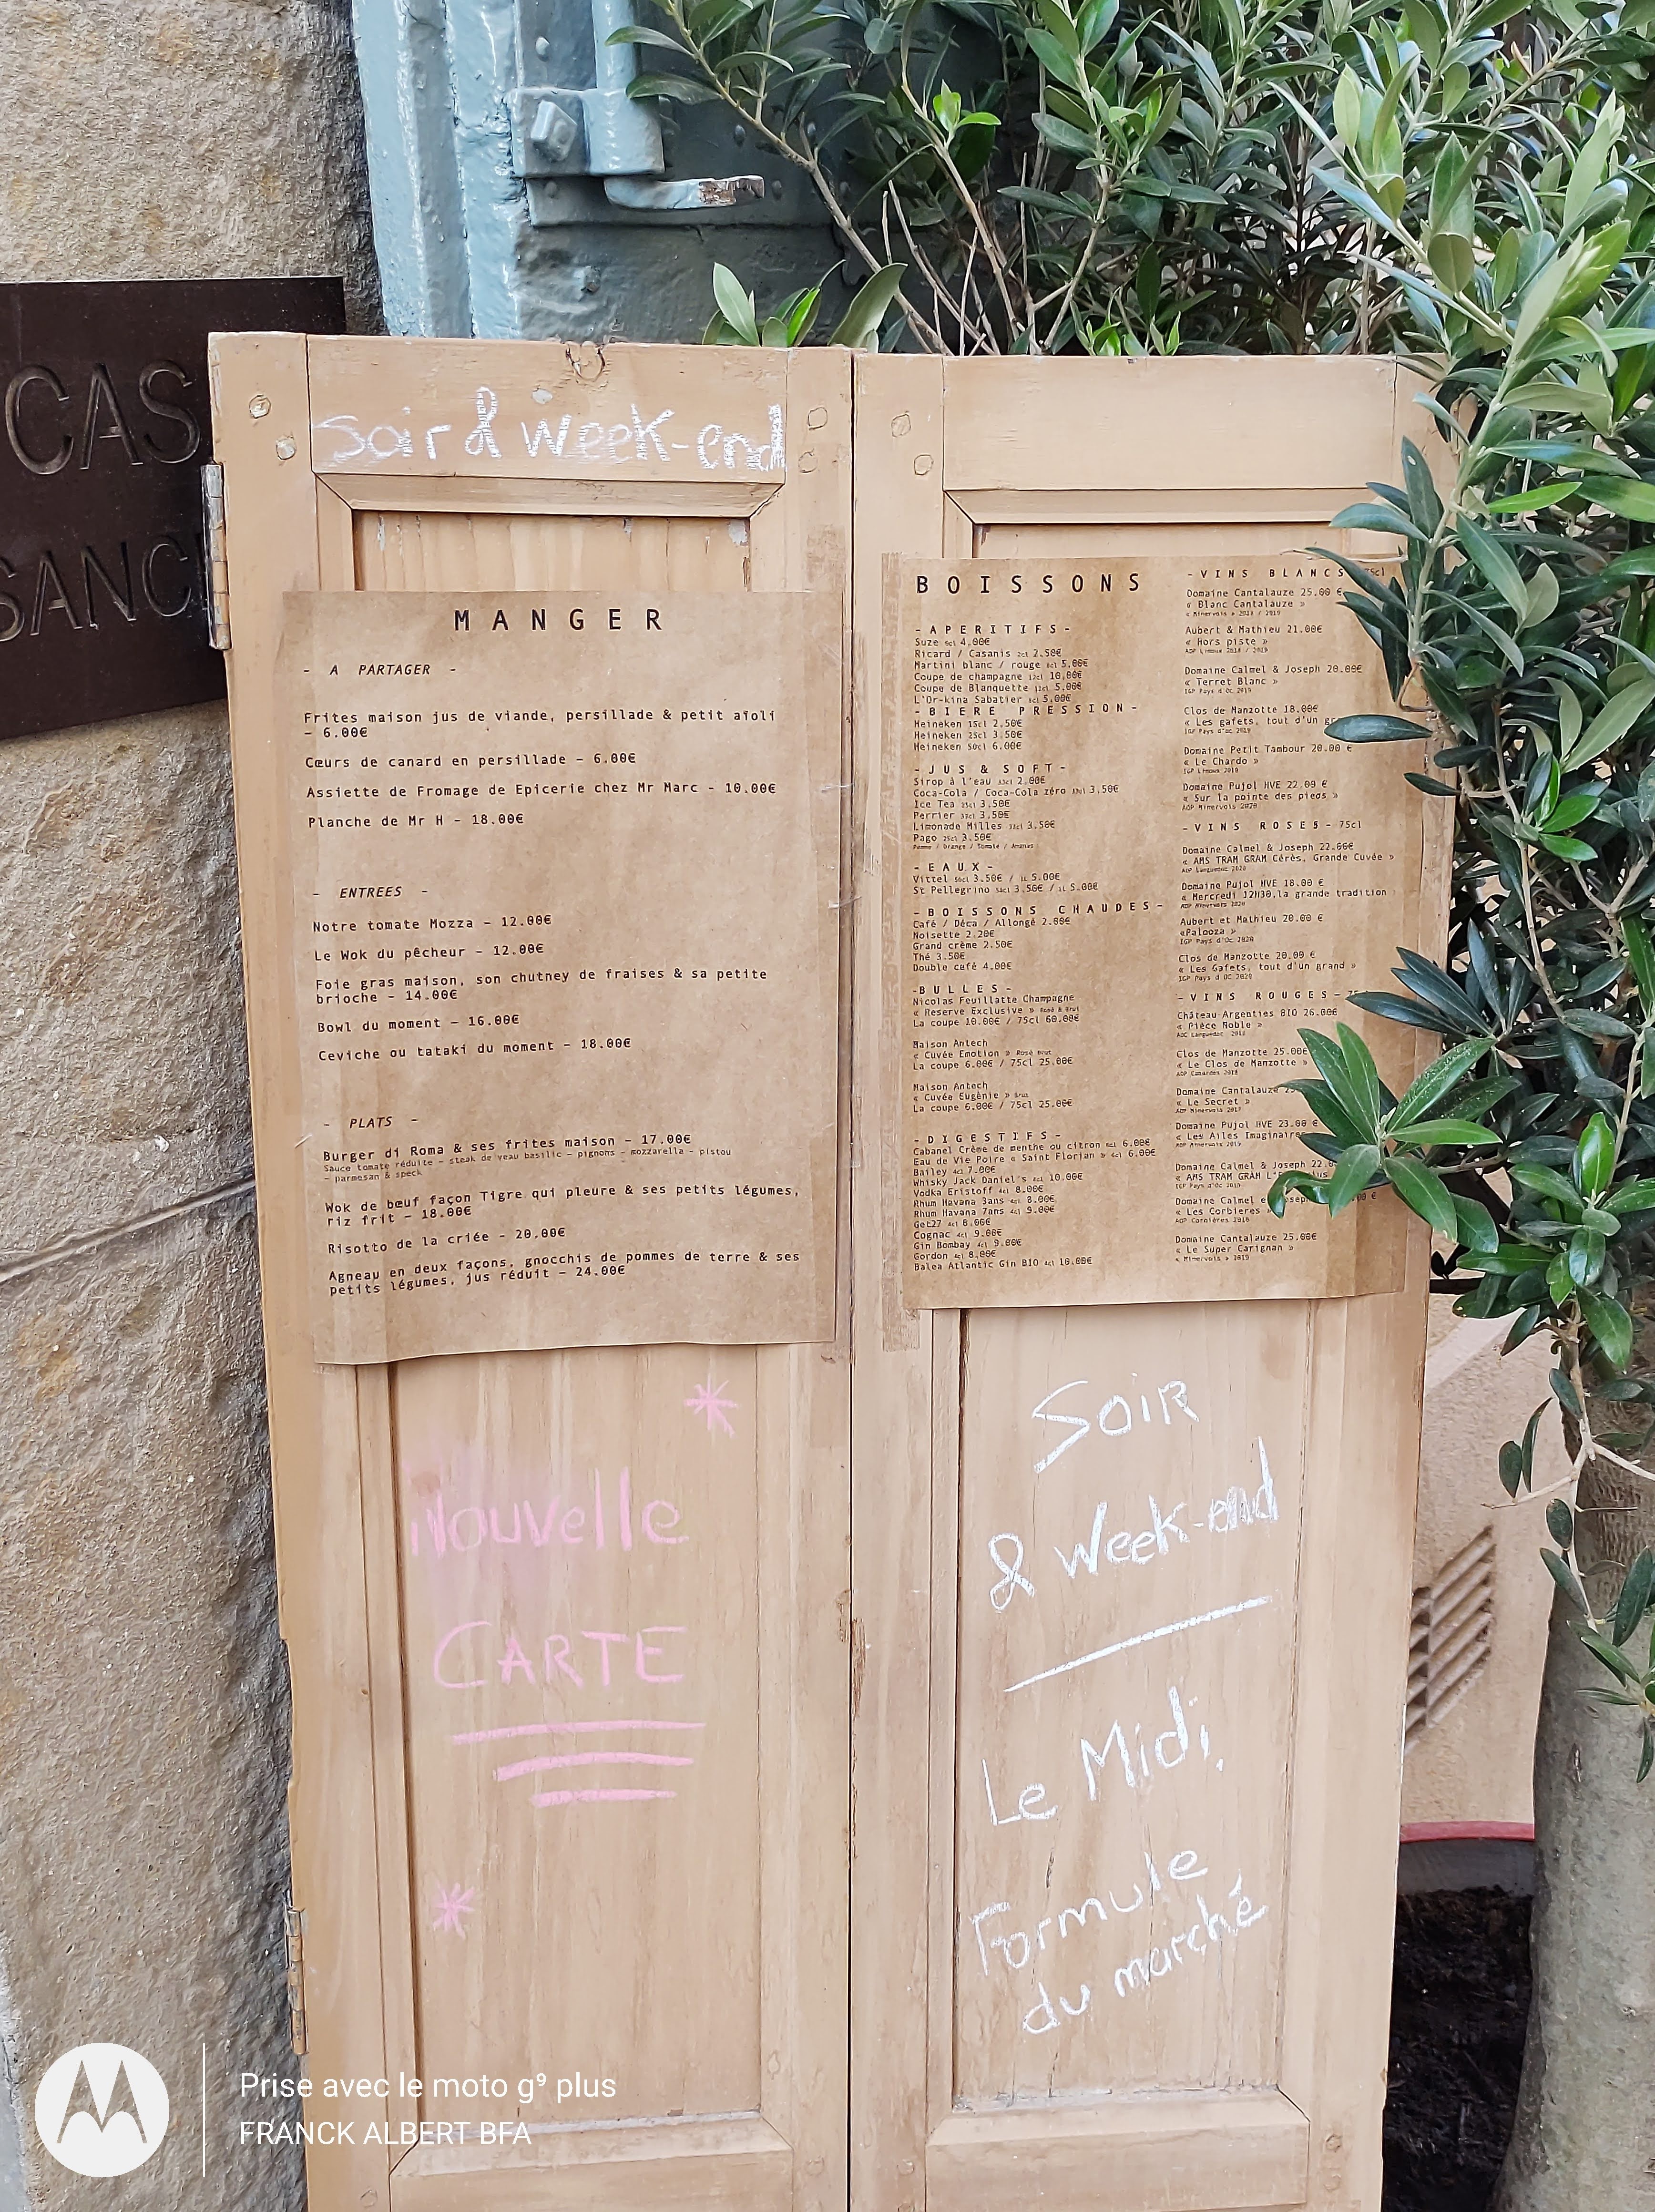 CAS
SANC
Soir & week-end
MANGER
- A PARTAGER -
Frites maison jus de viande, persillade & petit aïoli
- 6.00€
Cœurs de canard en persillade - 6.00€
Assiette de Fromage de Epicerie chez Mr Marc - 10.00€
Planche de Mr H - 18.00€
- ENTREES -
Notre tomate Mozza - 12.00€
Le Wok du pêcheur - 12.00€
Foie gras maison, son chutney de fraises & sa petite
brioche - 14.00€
Bowl du moment - 16.00€
Ceviche ou tataki du moment - 18.00€
- PLATS -
Burger di Roma & ses frites maison - 17.00€
Sauce tomate réduite - steak de veau basilic - pignons - mozzarella - pistou
- parmesan & speck
Wok de bœuf façon Tigre qui pleure & ses petits légumes,
riz frit - 18.00€
Risotto de la criée - 20.00€
Agneau en deux façons, gnocchis de pommes de terre & ses
petits légumes, jus réduit - 24.00€
BOISSONS
-APERITIFS-
Suze 6cl 4.00€
Ricard / Casanis 2cl 2.50€
Martini blanc / rouge 8cl 5.00€
Coupe de champagne 12cl 10.00€
Coupe de Blanquette 12cl 5.00€
L'Or-kina Sabatier 8cl 5.00€
-BIERE PRESSION-
Heineken 15cl 2.50€
Heineken 25cl 3.50€
Heineken 50cl 6.00€
-JUS & SOFT-
Sirop à l'eau 33cl 2.00€
Coca-Cola / Coca-Cola zéro 33cl 3.50€
Ice Tea 25cl 3.50€
Perrier 33cl 3.50€
Limonade Milles 33cl 3.50€
Pago 25cl 3.50€
Pomme / Orange / Tomate / Ananas
-EAUX-
Vittel 50cl 3.50€ / 1L 5.00€
St Pellegrino 50cl 3.50€ / 1L 5.00€
-BOISSONS CHAUDES-
Café / Déca / Allongé 2.00€
Noisette 2.20€
Grand crème 2.50€
Thé 3.50€
Double café 4.00€
-BULLES-
Nicolas Feuillatte Champagne
« Reserve Exclusive » Rosé & Brut
La coupe 10.00€ / 75cl 60.00€
Maison Antech
« Cuvée Emotion » Rosé Brut
La coupe 6.00€ / 75cl 25.00€
Maison Antech
« Cuvée Eugènie » Brut
La coupe 6.00€ / 75cl 25.00€
-DIGESTIFS-
Cabanel Crème de menthe ou citron 6cl 6.00€
Eau de Vie Poire « Saint Florian » 4cl 6.00€
Bailey 4cl 7.00€
Whisky Jack Daniel's 4cl 10.00€
Vodka Eristoff 4cl 8.00€
Rhum Havana 3ans 4cl 8.00€
Rhum Havana 7ans 4cl 9.00€
Get27 4cl 8.00€
Cognac 4cl 9.00€
Gin Bombay 4cl 9.00€
Gordon 4cl 8.00€
Balea Atlantic Gin BIO 4cl 10.00€
-VINS BLANCS 75cl
Domaine Cantalauze 25.00 €
« Blanc Cantalauze »
« Minervois » 2018 / 2019
Aubert & Mathieu 21.00€
« Hors piste »
AOP Limoux 2018 / 2019
Domaine Calmel & Joseph 20.00€
« Terret Blanc »
IGP Pays d'Oc 2019
Clos de Manzotte 18.00€
« Les gafets, tout d'un gr
IGP Pays d'oc 2019
Domaine Petit Tambour 20.00 €
« Le Chardo »
IGP Limoux 2019
Domaine Pujol HVE 22.00 €
« Sur la pointe des pieds »
AOP Minervois 2020
-VINS ROSES- 75cl
Domaine Calmel & Joseph 22.00€
« AMS TRAM GRAM Cérès, Grande Cuvée »
AOP Languedoc 2020
Domaine Pujol HVE 18.00 €
« Mercredi 12H30,la grande tradition
AOP Minervois 2020
Aubert et Mathieu 20.00 €
«Palooza »
IGP Pays d'Oc 2020
Clos de Manzotte 20.00 €
« Les Gafets, tout d'un grand »
IGP Pays d'OC 2020
-VINS ROUGES- 75
Château Argenties BIO 26.00€
« Pièce Noble »
AOC Languedoc 2018
Clos de Manzotte 25.00€
« Le Clos de Manzotte »
AOP Cabardes 2018
Domaine Cantalauze
« Le Secret »
AOP Minervois 2017
Domaine Pujol HVE 23.00 €
« Les Ailes Imaginaire
AOP Minervois 2019
Domaine Calmel & Joseph 22.0
« AMS TRAM GRAM L'
IGP Pays d'Oc 2019
Domaine Calmel e
« Les Corbieres
AOP Corbières 2018
Domaine Cantalauze 25.00€
« Le Super Carignan »
« Minervois » 2019
Nouvelle
CARTE
SOIR
& week-end
Le Midi,
Formule
du marché
Prise avec le moto g⁹ plus
FRANCK ALBERT BFA